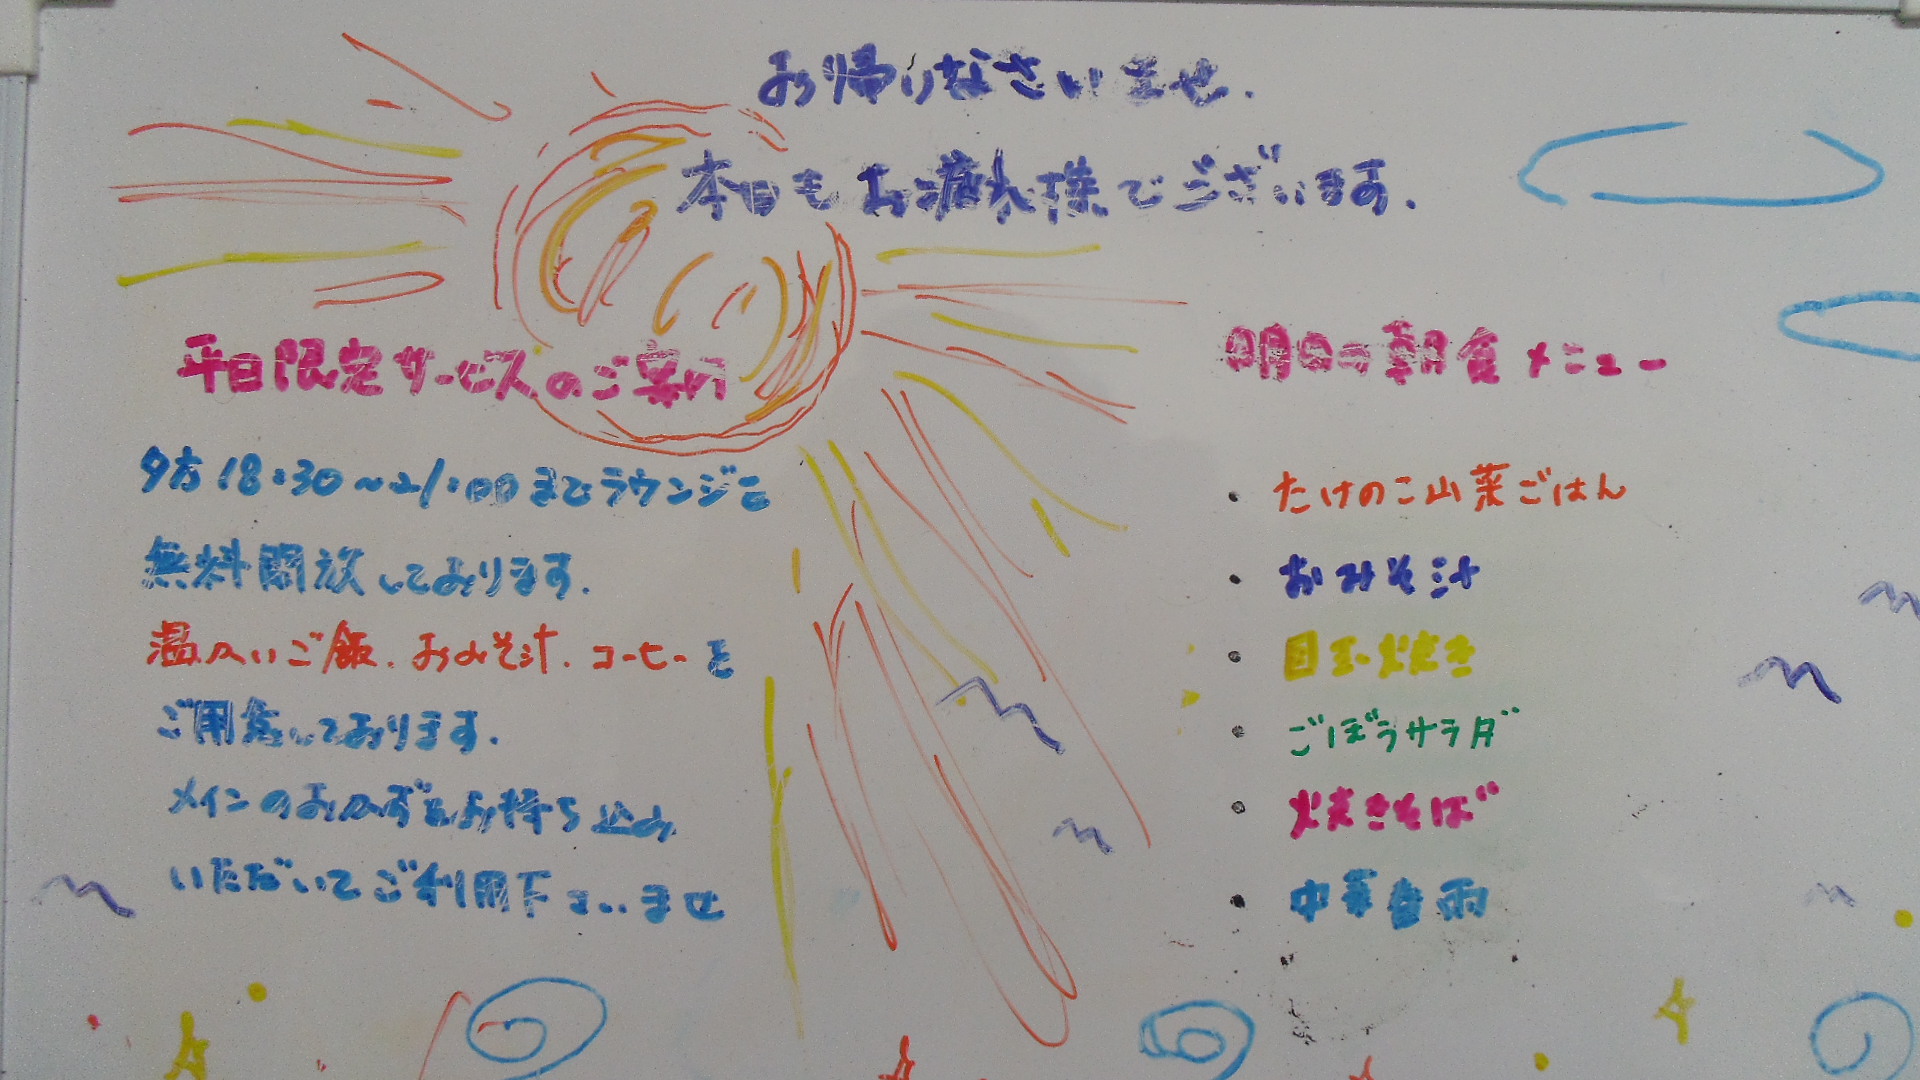 お帰りなさいませ.
本日もお疲れ様でございます.
平日限定サービスのご案内
夕方18:30~21:00までラウンジを
無料開放しております.
温かいご飯.おみそ汁.コーヒーを
ご用意しております.
メインのおかずをお持ち込み
いただいてご利用下さいませ
明日の朝食メニュー
・たけのこ山菜ごはん
・おみそ汁
・目玉焼き
・ごぼうサラダ
・焼きそば
・中華春雨